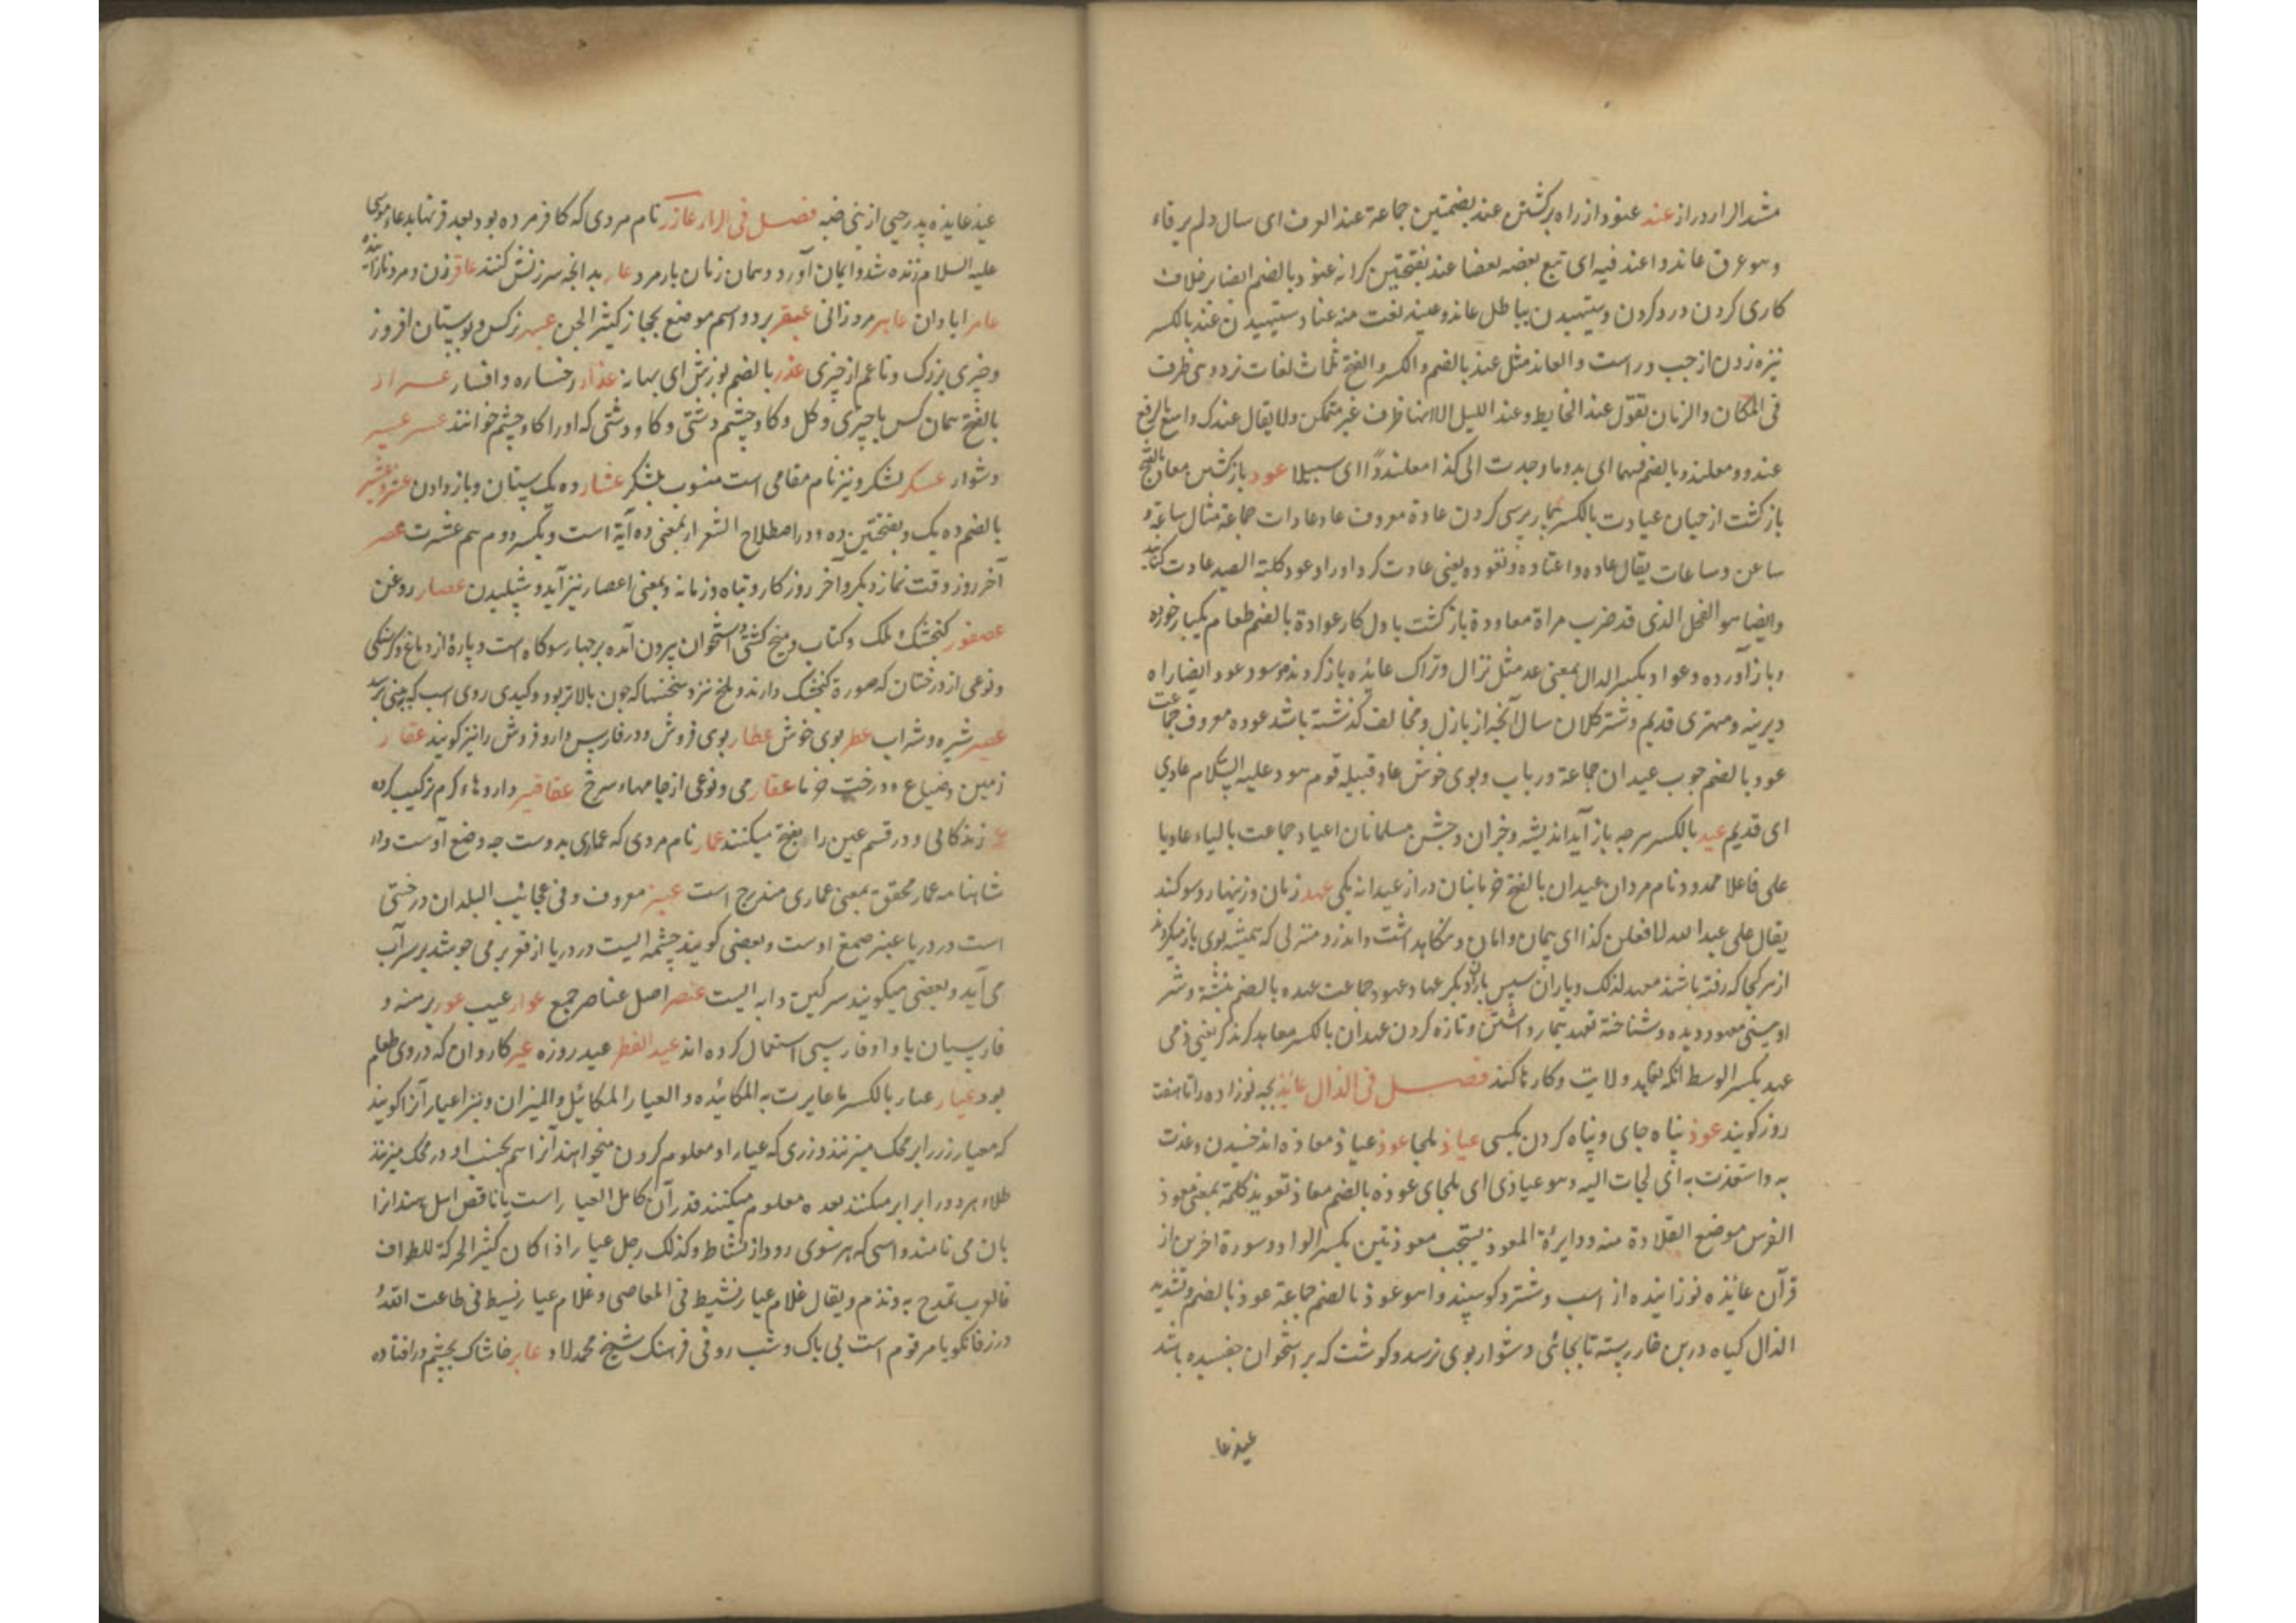 مشد الرا دراز عند عنود از راه برگشتن عند بضمتین جماعة عند الوف ای سال ولم یرقاء
وهو عرق عاند و اعند فیه ای تبع بعضه بعضا عند بفتحتین کرانه عنود بالضم ایضا بر خلاف
کاری کردن و رد کردن و ستیهیدن بباطل عاند و عنید نعت منه عناد ستیهیدن عند بالکسر
نیزه زدن از چپ و راست و العاند مثل عند بالضم والکسر والفتح ثلاث لغات نزد وهی ظرف
فی المکان والزمان تقول عند الحایط وعند اللیل الا انها ظرف غیر متمکن ولا یقال عندک واسع بالرفع
عندد و معلندد بالضم فیهما ای بد وما وجدت الی کذا معلنددا ای سبیلا عود بازگشتن معاد بالفتح
بازگشت از حیان عیادت بالکسر بیمار پرسی کردن عادة معروف عاد عادات جماعة مثال ساعة و
ساعن وساعات یقال عاده و اعتاده و تعوده یعنی عادت کرد او را و عود کلبه الصید عادت کنانید
وایضا هو الفحل الذی قد ضرب مراة معاودة بازگشت باول کار عوادة بالضم طعام یکبار خورده
و باز آورده و عواد بکسر الدال بمعنی عد مثل نزال و تراک عایده باز کردند موسود عود ایضا راه
دیرینه و مهتری قدیم و شتر کلان سال آنچه از بازل و مخالف گذشته باشد عوده معروف جماعت
عود بالضم چوب عیدان جماعة و رباب و بوی خوش عاد قبیله قوم هود علیه السلام عادی
ای قدیم عید بالکسر هر چه باز آید اندیشه و خزان و جشن مسلمانان اعیاد جماعت بالیاء عادیا
علی فاعلا ممدود نام مردان عیدان بالفتح خرمابنان دراز عیدانه یکی عهد زمان و زینهار و سوگند
یقال علی عهد الله لافعلن کذا ای پیمان و امان و نگاه داشت و اندرز و منزلی که همیشه بوی باز میگردند
از هر کجا که رفته باشند معهد لذلک و باران سپس باران دیگر عهاد و عهود جماعت عهده بالضم نبشته و شر
او سیتی معهود دیده و شناخته تعهد تیمار داشتن و تازه کردن عهدان بالکسر معاهد کردند کر یعنی ذمی
عهد بکسر الوسط آنکه تعاهد ولایت و کارها کند فصل فی الذال عائذ بچه نوزاده را تا هفت
روز گویند عوذ پناه جای و پناه کردن بکسی عیاذ ملجا عوذ عیاذ معاذه اندخسیدن وعذت
به و استعذت به ای لجات الیه وهو عیاذی ای ملجای عوذه بالضم معاذ تعویذ کلمة بمعنی معوذ
الفرس موضع القلادة منه و دایرة المعوذ تستحب معوذتین بکسر الواو دو سورة اخرین از
قرآن عائذه نوزاینده از اسب و شتر و گوسپند و اسو عوذ بالضم جماعة عوذ بالضم و تشدید
الذال گیاه در بن خار رسته تا بجائی دشوار بوی نرسد و گوشت که بر استخوان چفسیده باشد
عیذ عا
عیذ عایذه پدر حیی از بنی ضبه فصل فی الراء عازر نام مردی که کافر مرده بود بعد قرنها بدعاء موسی
علیه السلام زنده شد و ایمان آورد و همان زمان باز مرد عار بدانچه سرزنش کنند عاقر زن و مرد نازاینده
عامر ابادان عاهر مرد زانی عبقر برد و اسم موضع بحجاز کثیر الجن عبهر نرگس و بوستان افروز
و خیری بزرگ و ناعم از چیزی عذر بالضم پوزش ای بهانه عذار رخساره و افسار عرار
بالفتح همان کس با چیزی و گل و گاو چشم دشتی و گاو دشتی که او را گاو چشم خوانند عسر عسیر
دشوار عسکر لشکر و نیز نام مقامی است منسوب بلشکر عشار ده یک ستان و باز دادن عشر و عشیر
بالضم ده یک و بفتحتین ده و در اصطلاح الشعرا بمعنی ده آیة است و بکسر دوم هم عشرت عصر
آخر روز و وقت نماز دیگر و آخر روزگار و تباه و زمانه و بمعنی اعصار نیز آید و شپلیدن عصار روغن
عصفور گنجشک ملک و کتاب و میخ کشتی و استخوان بیرون آمده بر جبار سوگاه است و پارۀ از دماغ و گرسنگی
و نوعی از درختان که صورة گنجشک دارند و ملخ نزد سخنها که چون بالاتر بود و کیدی روی اسب که بینی رسد
عصیر شیره و شراب عطر بوی خوش عطار بوی فروش و در فارس دارو فروش را نیز گویند عقار
زمین و ضیاع و درخت خرما عقار می و نوعی از جامهاء سرخ عقاقیر داروهاء گرم ترکیب کرده
عمر زندگانی و در قسم عین را بفتح میکنند عمار نام مردی که عماری بدوست چه وضع اوست و در
شاهنامه عمار محقق بمعنی عماری مندرج است عنبر معروف و فی عجائب البلدان درختی
است در دریا عنبر صمغ اوست و بعضی گویند چشمه ایست در دریا از قعر بر می جوشد بر سر آب
می آید و بعضی میگویند سرگین دابه ایست عنصر اصل عناصر جمع عوار عیب عور برهنه و
فارسیان با واو فارسی استعمال کرده اند عید الفطر عید روزه عیر کاروان که در وی طعام
بود عیار عیار بالکسر ما عایرت به المکائده و العیار المکائیل والمیزان و نیز اعیار آنرا گویند
که معیار زر را بر محک میزنند و زری که عیار او معلوم کردن میخواهند آنرا هم بجنب او در محک میزنند
طلاء هر دو را برابر میکنند بعده معلوم میکنند قدر آن کامل العیار است یا ناقص اسل هند آنرا
بان می نامند و اسپی که هر سوی دود از نشاط و کذلک رجل عیار اذا کان کثیر الحرکة للطواف
فالعرب تمدح به و تذم و یقال غلام عیار نشیط فی المعاصی و غلام عیار نشیط فی طاعت الله
در زفانگویا مرقوم است بی باک و شب رو فی فرهنگ شیخ محمد لاد عابر خاشاک بچشم در افتاده